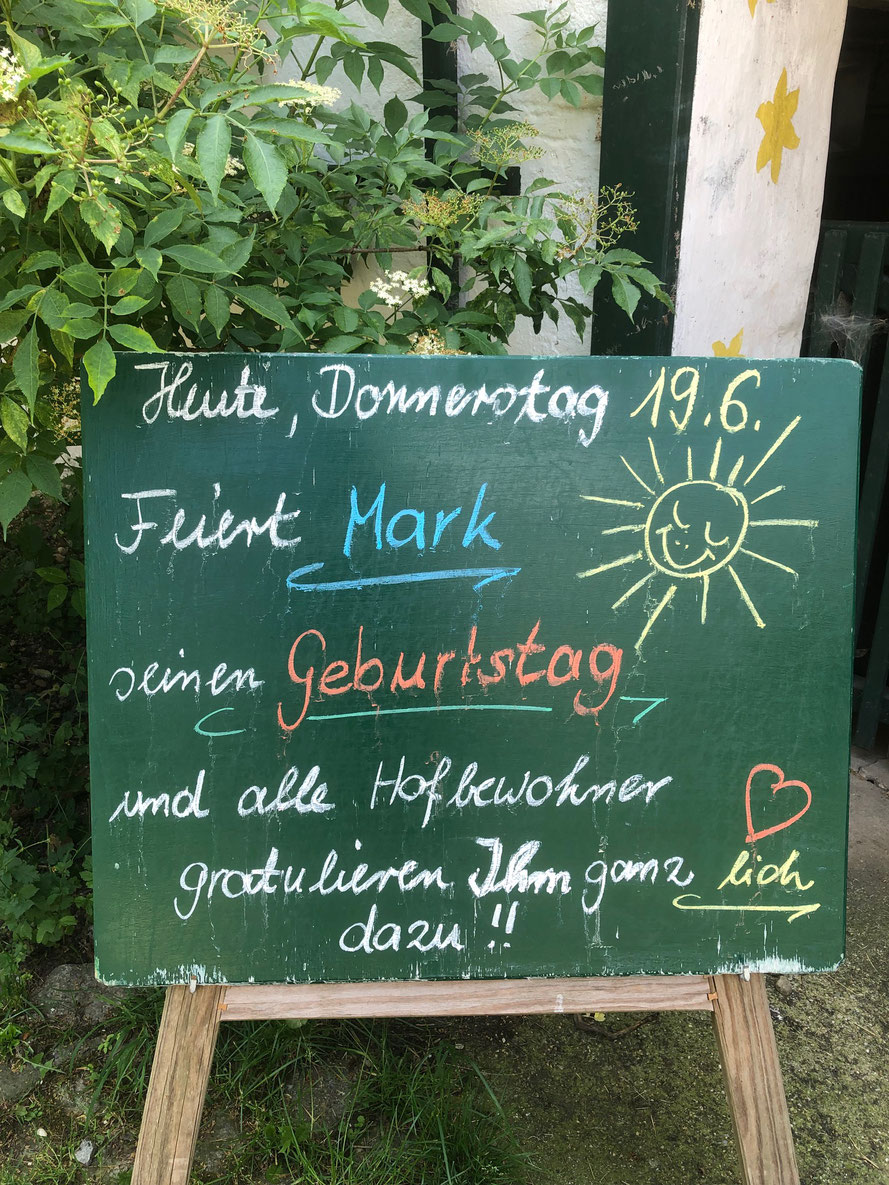 Heute, Donnerstag 19.6.
Feiert Mark
seinen Geburtstag
und alle Hofbewohner
gratulieren Ihm ganz lich
dazu !!